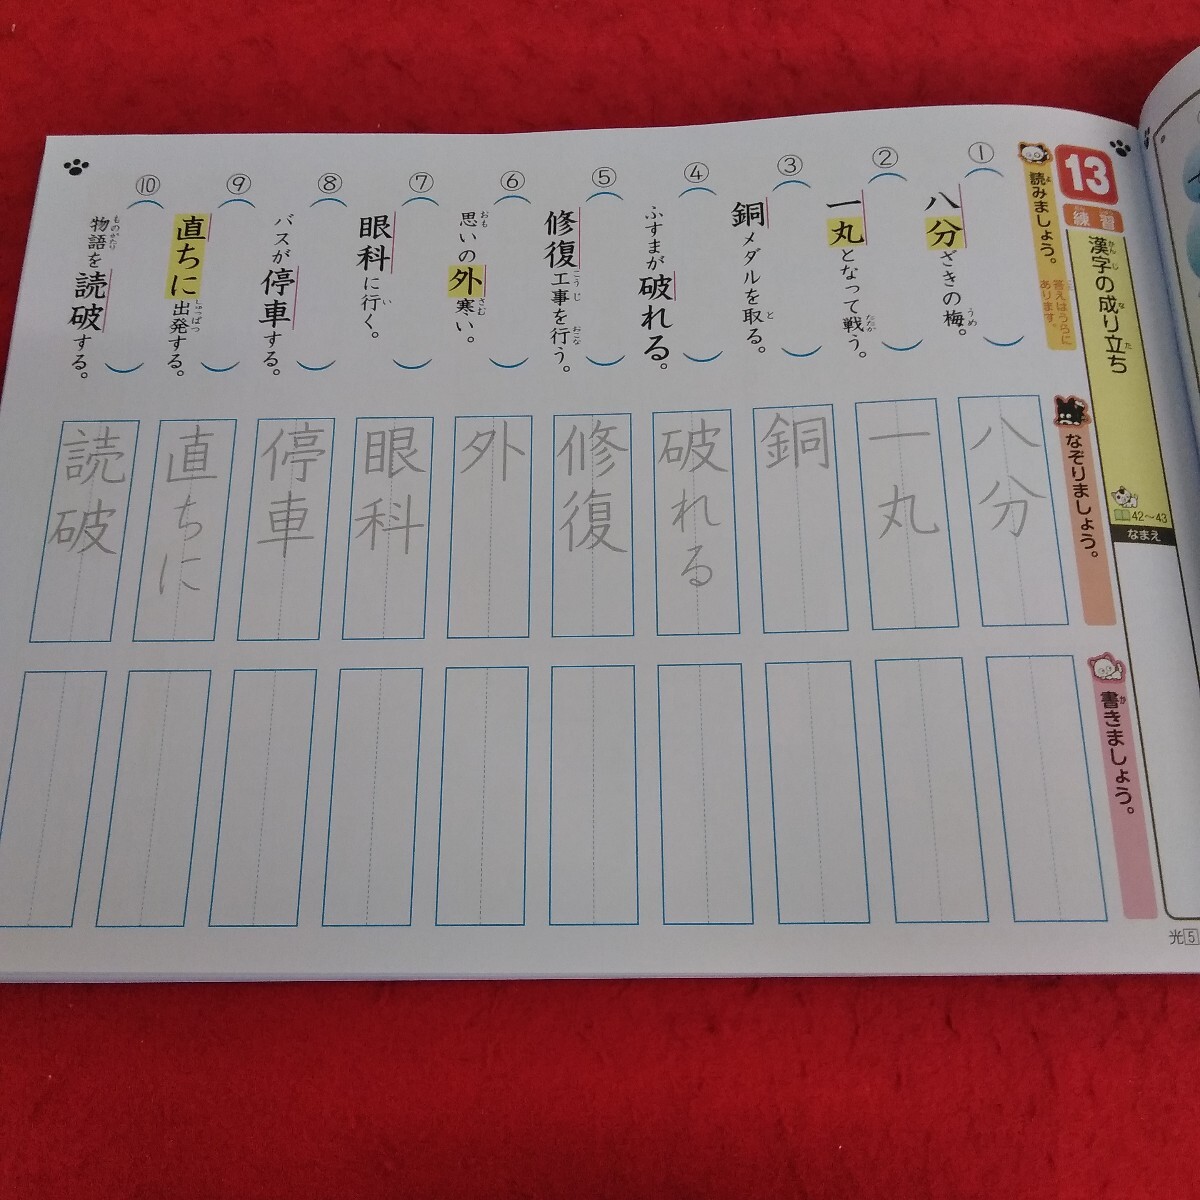 13
練習
漢字の成り立ち
かんじ
な
た
42〜43
なまえ
読みましょう。
よ
答えはうらにあります。
① 八分ざきの梅。
うめ
② 一丸となって戦う。
たたか
③ 銅メダルを取る。
と
④ ふすまが破れる。
⑤ 修復工事を行う。
こうじ
おこな
⑥ 思いの外寒い。
おも
さむ
⑦ 眼科に行く。
い
⑧ バスが停車する。
⑨ 直ちに出発する。
しゅっぱつ
⑩ 物語を読破する。
ものがたり
なぞりましょう。
八分
一丸
銅
破れる
修復
外
眼科
停車
直ちに
読破
書きましょう。
か
光5